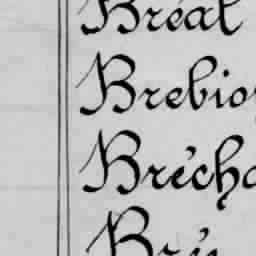 Bréal
Brebio
Brécha
Bré